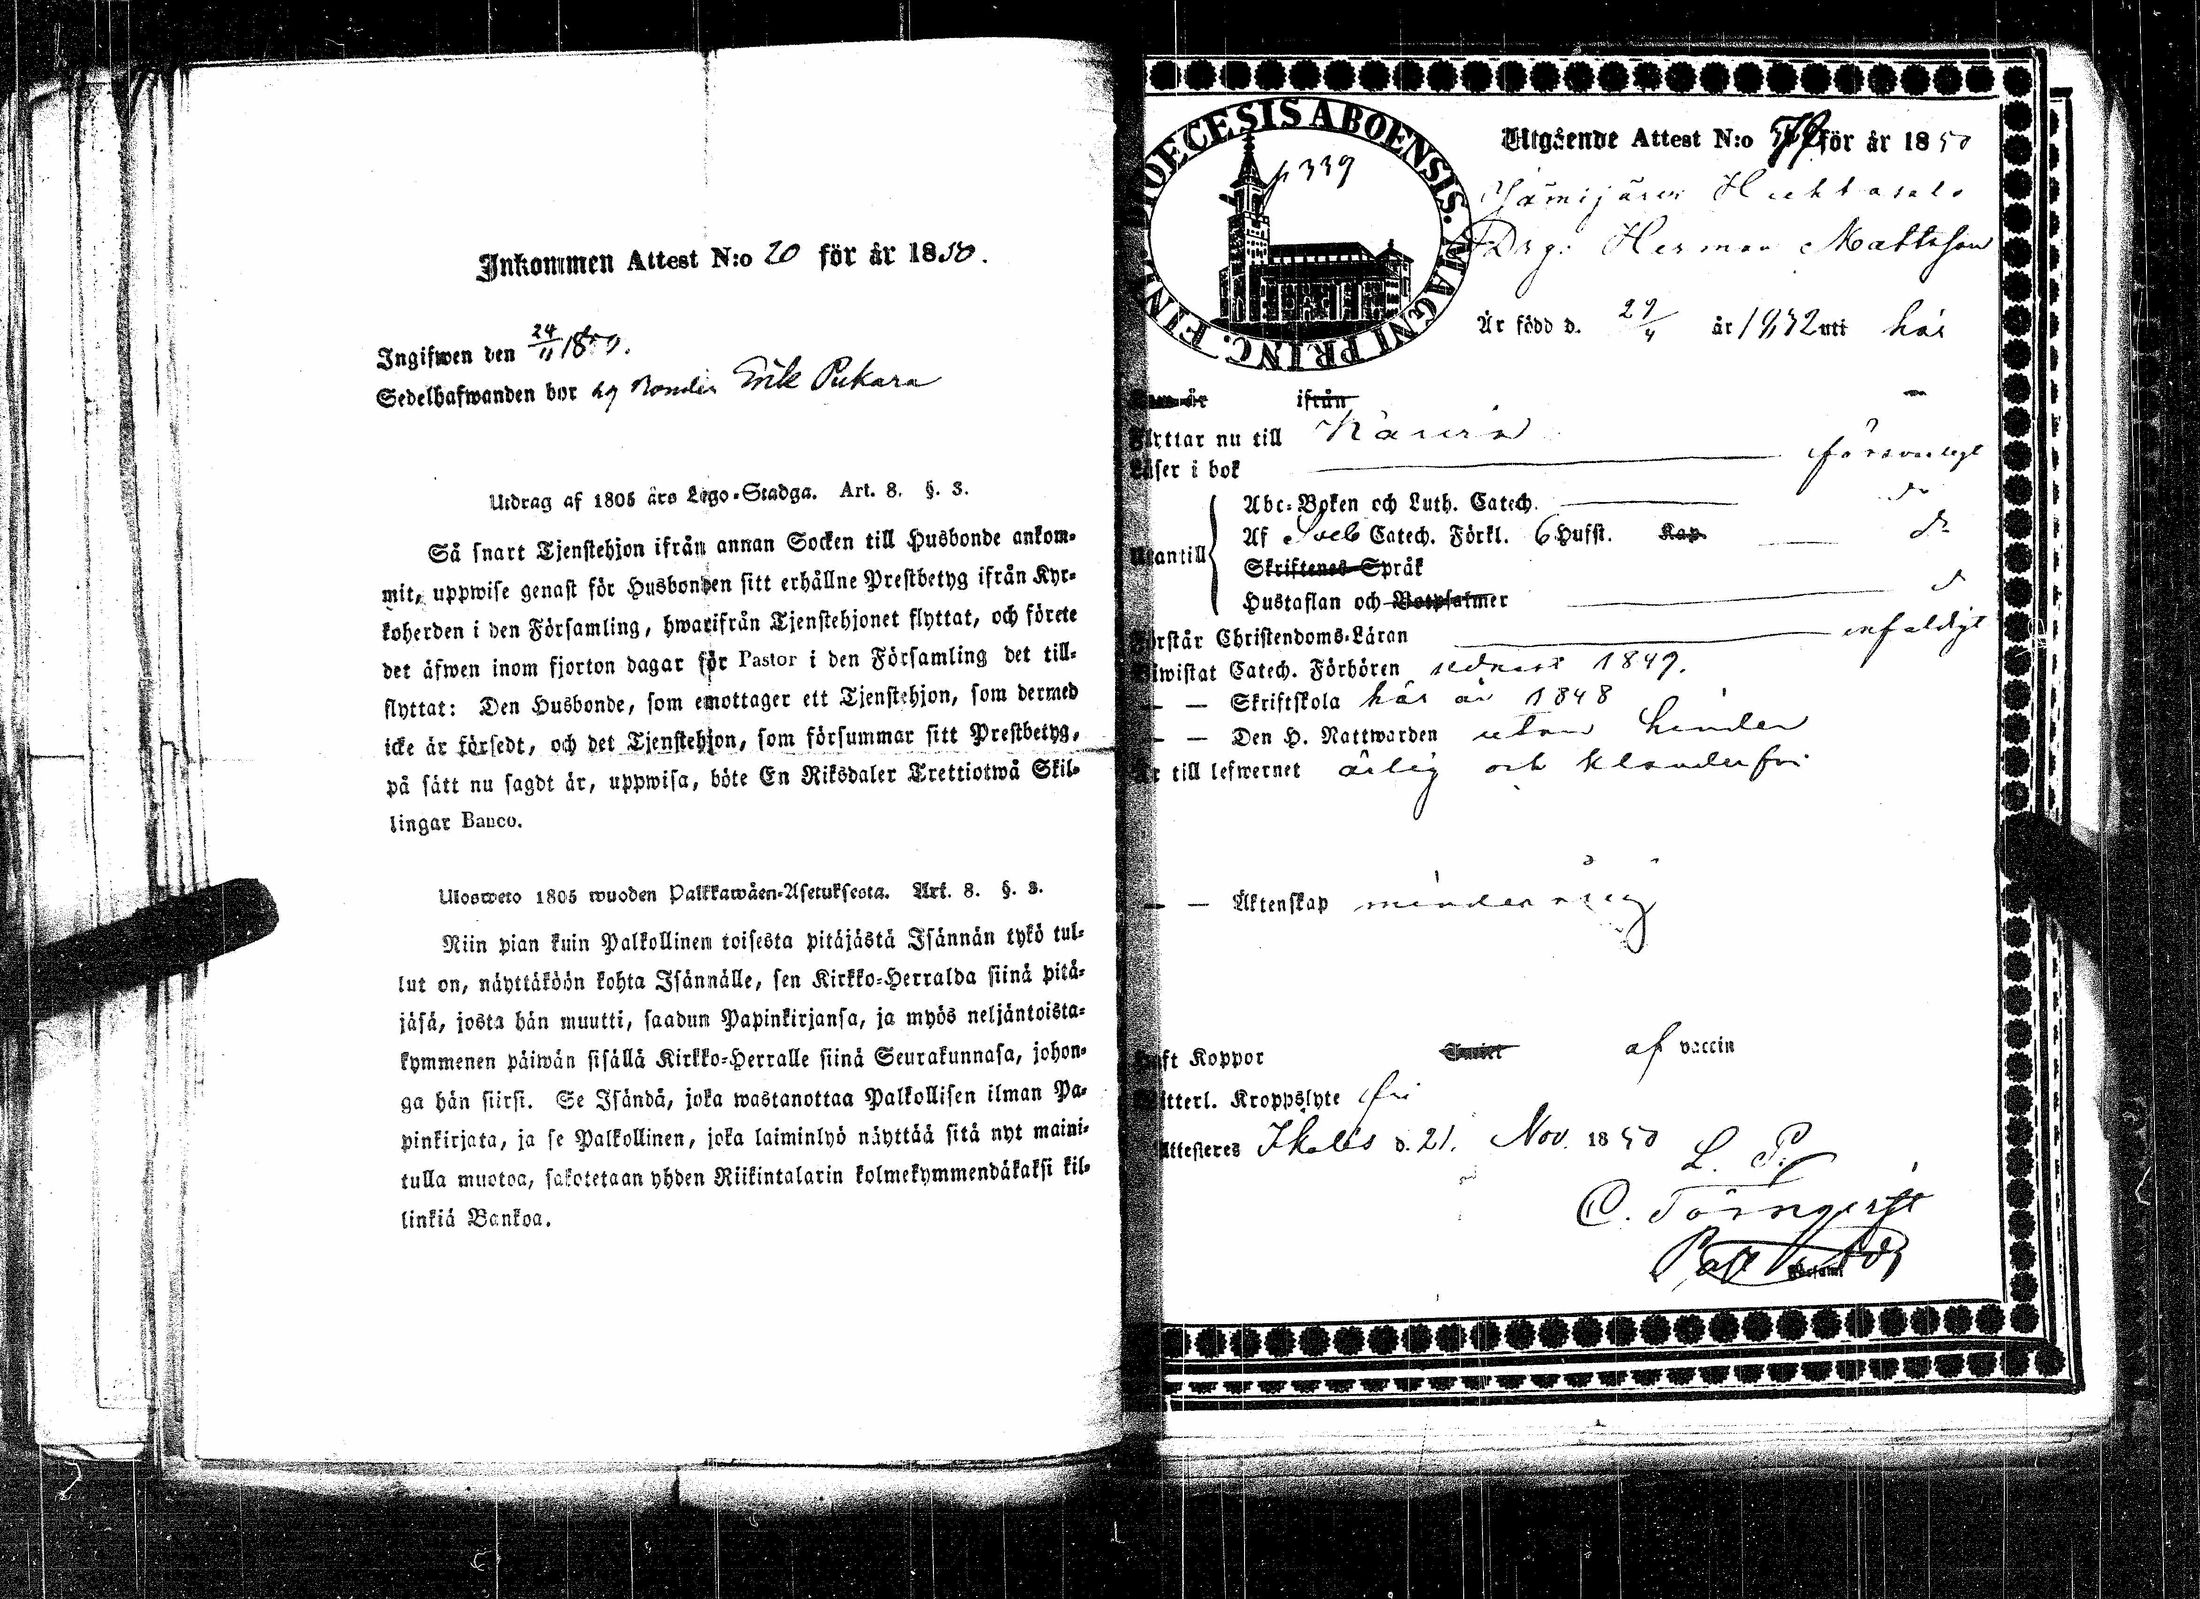 Inkommen Attest N:o 20 för år 1850.
Ingifwen den 24/11 1850.
Sedelhafwanden bor hg Bonden Erik Pukara
Utdrag af 1805 års Lego-Stadga. Art. 8. §. 3.
Så snart Tjenstehjon ifrån annan Socken till Husbonde ankom-
mit, uppwise genast för Husbonden sitt erhållne Prestbetyg ifrån Kyr-
koherden i den Församling, hwarifrån Tjenstehjonet flyttat, och förete
det äfwen inom fjorton dagar för Pastor i den Församling det till-
flyttat: Den Husbonde, som emottager ett Tjenstehjon, som dermed
icke är försedt, och det Tjenstehjon, som försummar sitt Prestbetyg,
på sätt nu sagdt är, uppwisa, böte En Riksdaler Trettiotwå Skil-
lingar Banco.
Ulosweto 1805 wuoden Palkkawäen-Asetuksesta. Art. 8. §. 3.
Niin pian kuin Palkollinen toisesta pitäjästä Isännän tykö tul-
lut on, näyttäköön kohta Isännälle, sen Kirkko-Herralda siinä pitä-
jäsä, josta hän muutti, saadun Papinkirjansa, ja myös neljäntoista-
kymmenen päiwän sisällä Kirkko-Herralle siinä Seurakunnasa, johon-
ga hän siirsi. Se Isändä, joka wastanottaa Palkollisen ilman Pa-
pinkirjata, ja se Palkollinen, joka laiminlyö näyttää sitä nyt maini-
tulla muotoa, sakotetaan yhden Riikintalarin kolmekymmendäkaksi kil-
linkiä Bankoa.
DIOECESIS ABOENSIS. MAGNI PRINC. FINL.
p 339
Utgående Attest N:o för år 1850
Jämijärvi
Drg. Herman Mattsson
Är född d. 29/4 år 1832 uti här
ifrån
Flyttar nu till
Läser i bok försvarligt
Utantill
Abc-Boken och Luth. Catech. do
Af Sveb Catech. Förkl. 6 Hufst. Kap. do
Skriftenes Språk
Hustaflan och Botpsalmer d
Förstår Christendoms-Läran enfaldigt
Biwistat Catech. Förhören sednast 1849.
— — Skriftskola här år 1848
— — Den H. Nattwarden utan hinder
Är till lefwernet ärlig och klanderfri
— — Äktenskap minderårig
Haft Koppor af vaccin
Witterl. Kroppslyte fri
Attesteres Ikalis d. 21. Nov. 1850
L. P.
C. Törngren